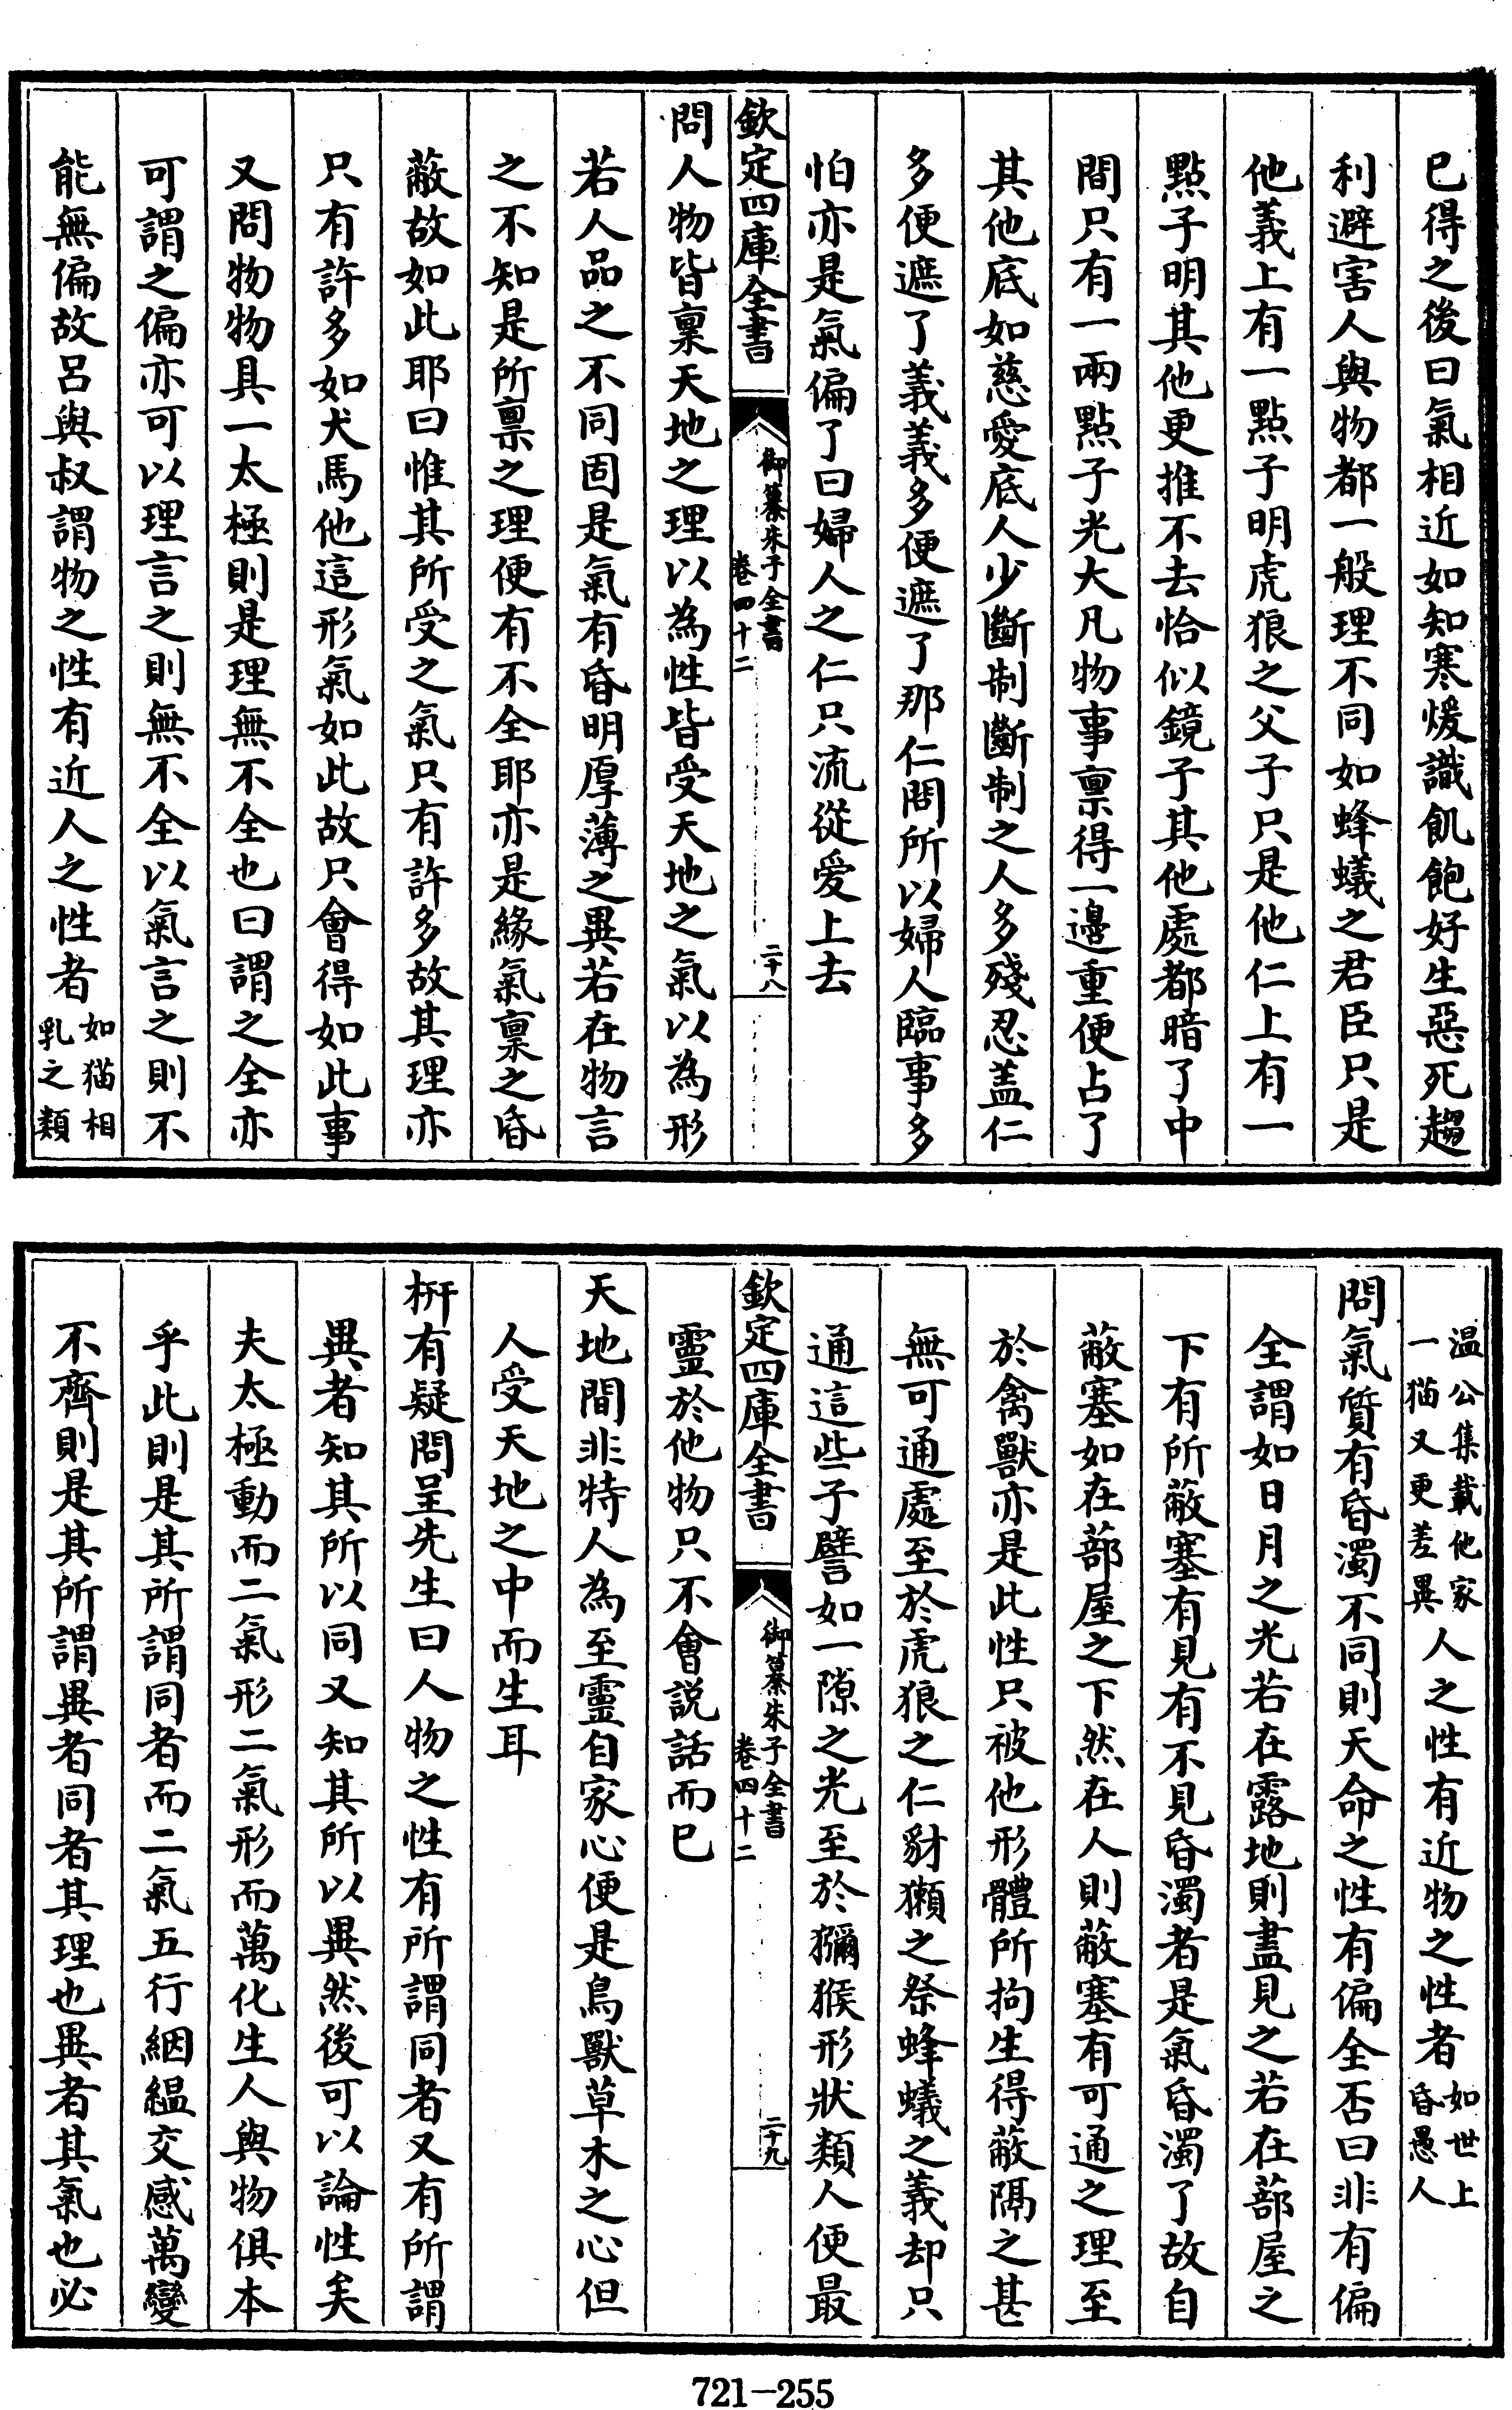 已得之後曰氣相近如知寒煖識飢飽好生惡死趨
利避害人與物都一般理不同如蜂蟻之君臣只是
他義上有一點子明虎狼之父子只是他仁上有一
點子明其他更推不去恰似鏡子其他處都暗了中
間只有一兩點子光大凡物事稟得一邊重便占了
其他底如慈愛底人少斷制斷制之人多殘忍盖仁
多便遮了義義多便遮了那仁問所以婦人臨事多
怕亦是氣偏了曰婦人之仁只流從爱上去
欽定四庫全書
御纂朱子全書
卷四十二
二十八
問人物皆稟天地之理以為性皆受天地之氣以為形
若人品之不同固是氣有昏明厚薄之異若在物言
之不知是所稟之理便有不全耶亦是緣氣稟之昏
蔽故如此耶曰惟其所受之氣只有許多故其理亦
只有許多如犬馬他這形氣如此故只會得如此事
又問物物具一太極則是理無不全也曰謂之全亦
可謂之偏亦可以理言之則無不全以氣言之則不
能無偏故呂與叔謂物之性有近人之性者如猫相
乳之類
温公集載他家
一猫又更差異人之性有近物之性者如世上
昏愚人
問氣質有昏濁不同則天命之性有偏全否曰非有偏
全謂如日月之光若在露地則盡見之若在蔀屋之
下有所蔽塞有見有不見昏濁者是氣昏濁了故自
蔽塞如在蔀屋之下然在人則蔽塞有可通之理至
於禽獸亦是此性只被他形體所拘生得蔽隔之甚
無可通處至於虎狼之仁豺獺之祭蜂蟻之義却只
通這些子譬如一隙之光至於獼猴形狀類人便最
欽定四庫全書
御纂朱子全書
卷四十二
二十九
靈於他物只不會説話而已
天地間非特人為至靈自家心便是鳥獸草木之心但
人受天地之中而生耳
枅有疑問呈先生曰人物之性有所謂同者又有所謂
異者知其所以同又知其所以異然後可以論性矣
夫太極動而二氣形二氣形而萬化生人與物俱本
乎此則是其所謂同者而二氣五行絪縕交感萬變
不齊則是其所謂異者同者其理也異者其氣也必
721-255